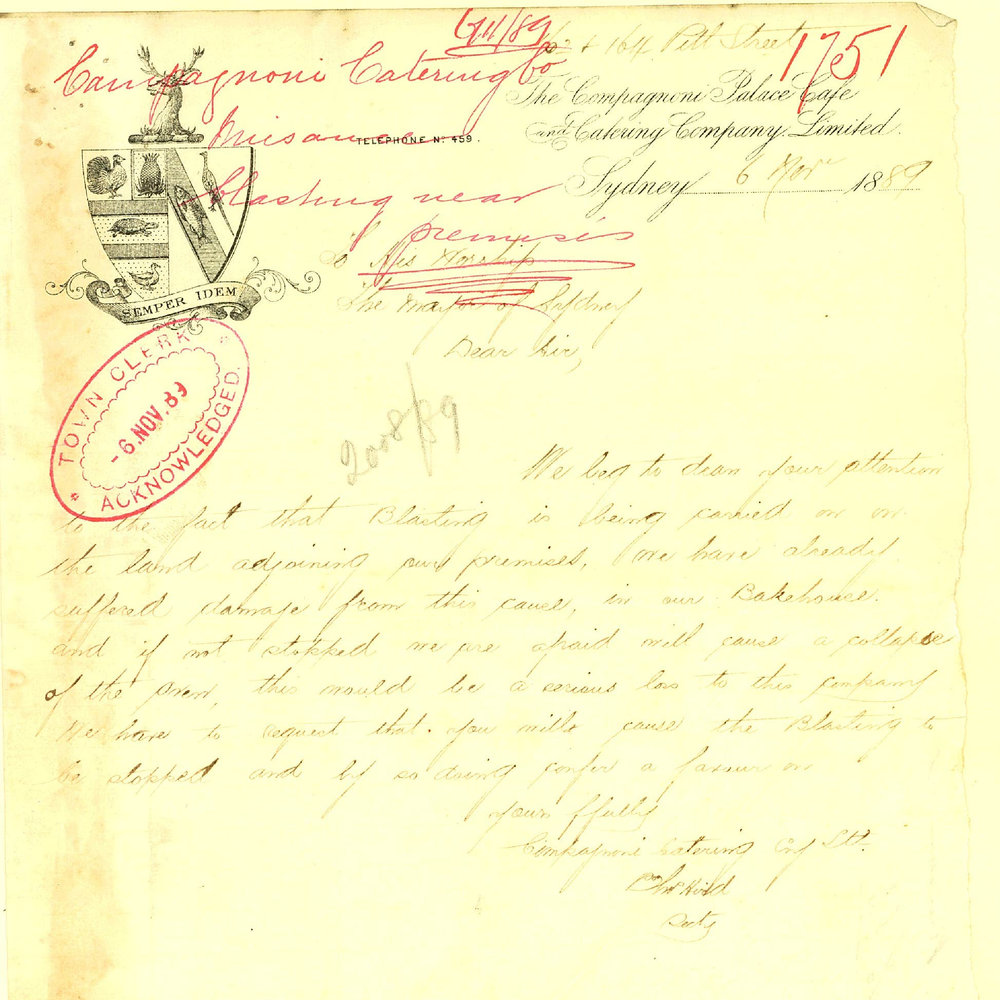 6/11/89
162 & 164 Pitt Street
1751
Compagnoni Catering Co
The Compagnoni Palace Cafe
Nuisance
TELEPHONE No 459.
and Catering Company Limited.
blasting near
Sydney 6 Novr 1889
premises
To His Worship
The Mayor of Sydney
SEMPER IDEM
Dear Sir,
TOWN CLERK
- 6. NOV. 89
ACKNOWLEDGED.
2008/89
We beg to draw your attention
to the fact that Blasting is being carried on on
the land adjoining our premises, we have already
suffered damage from this cause, in our Bakehouse.
and if not stopped we are afraid will cause a collapse
of the oven, this would be a serious loss to this company
We have to request that you will cause the Blasting to
be stopped and by so doing confer a favour on
yours ffully
Compagnoni Catering Coy Ltd.
Secty